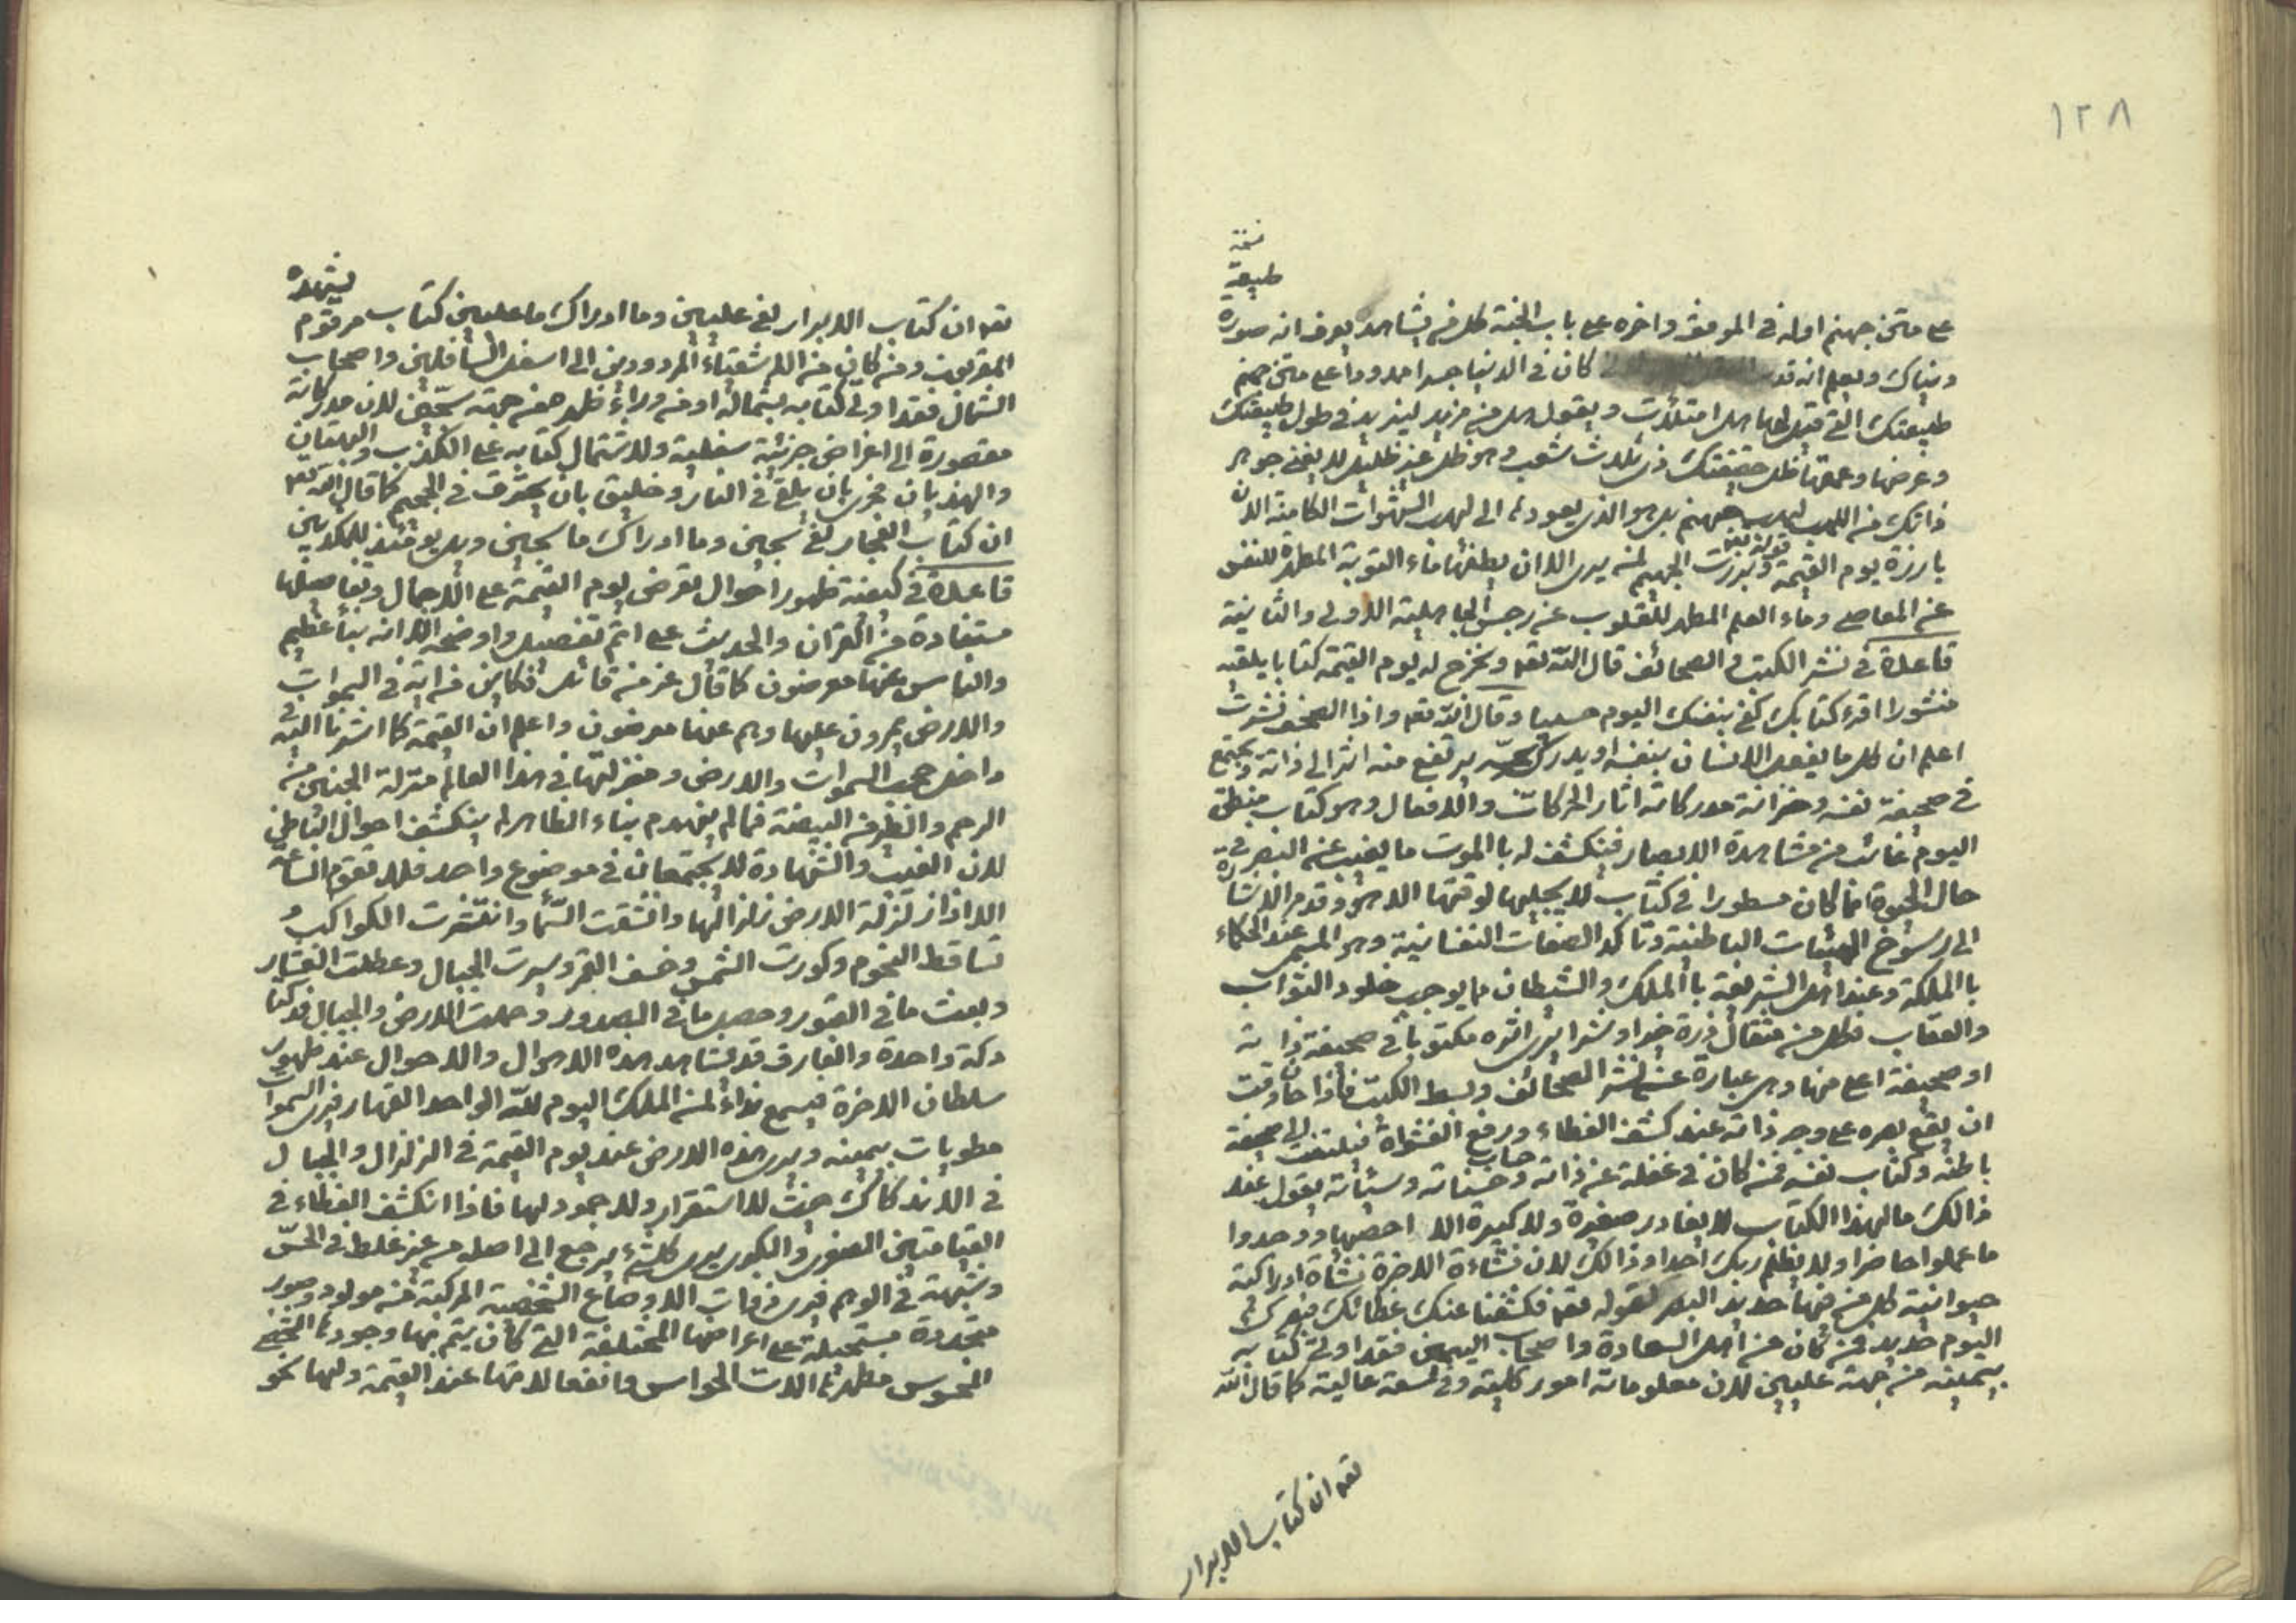 ١٢٨
نسخة
طبيعة
على متن جهنم اوله في الموقف واخره على باب الجنة كل من يشاهده يعرف انه صورة
دنياك ويعلم انه قد كان في الدنيا جسرا ممدودا على متن جهنم
طبيعتك التي قيل لها هل امتلأت ويقول هل من مزيد ليزيد في طول طبيعتك
وعرضها وعمقها ظل حقيقتك ذي ثلاث شعب وهو ظل غير ظليل لا يغني جوهر
ذاتك من اللهب لهب جهنم بل هو الذي يعودها الى لهب الشهوات الكامنة الان
بارزة يوم القيمة قوله تعم وبرزت الجحيم لمن يرى الا ان يطفئها ماء التوبة المطهرة للنفس
عن المعاصي وماء العلم المطهر للقلوب عن رجس الجاهلية الاولى والثانية
قاعدة في نشر الكتب والصحائف قال الله تعم ونخرج له يوم القيمة كتابا يلقيه
منشورا اقرء كتابك كفى بنفسك اليوم حسيبا وقال الله تعم واذا الصحف نشرت
اعلم ان كل ما يفعله الانسان بنفسه او يدرك بحسه يرتفع منه اثر الى ذاته ويجتمع
في صحيفة نفسه وخزانة مدركاته اثار الحركات والافعال وهو كتاب منطق
اليوم غائب من مشاهدة الابصار فينكشف له بالموت ما يغيب عنه البصر في
حال الحيوة مما كان مسطورا في كتاب لا يجليها لوقتها الا هو وقد مر الاشارة
الى رسوخ الهيئات الباطنية وتاكد الصفات النفسانية وهو المسمى عند الحكماء
با الملكة وعند اهل الشريعة با الملك والشيطان مما يوجب خلود الثواب
والعقاب فكل من مثقال ذرة خيرا او شرا يرى اثره مكتوبا في صحيفة ذاته
او صحيفة اعلى منها وهي عبارة عن نشر الصحائف وبسط الكتب فاذا حان وقت
ان يقع بصره على وجه ذاته عند كشف الغطاء ورفع الغشاوة فيلتفت الى صحيفة
باطنه وكتاب نفسه فمن كان في غفلة عن ذاته وحساب حسناته وسيئاته يقول عند
ذالك مالهذا الكتاب لا يغادر صغيرة ولا كبيرة الا احصيها ووجدوا
ما عملوا حاضرا ولا يظلم ربك احدا وذالك لان نشاءة الاخرة نشاة ادراكية
حيوانية كل من فيها حديد البصر لقوله تعم فكشفنا عنك غطائك فبصرك
اليوم حديد فمن كان من اهل السعادة واصحاب اليمين فقد اوتي كتابه
بيمينه من جهة عليين لان معلوماته امور كلية وفي لسعة عالية كما قال الله
تعم ان كتاب الابرار
تعم ان كتاب الابرار لفي عليين وما ادراك ما عليين كتاب مرقوم يشهده
المقربون ومن كان من الاشقياء المردودين الى اسفل السافلين واصحاب
الشمال فقد اوتي كتابه بشماله او من وراء ظهره من جهة سجين لان مدركاته
مقصورة الى اغراض جزئية سفلية ولاشتمال كتابه على الكذب والبهتان
والهذيان فحري بان يلقى في النار وخليق بان يحترق في الجحيم كما قال الله تعم
ان كتاب الفجار لفي سجين وما ادراك ما سجين ويل يومئذ للمكذبين
قاعدة في كيفية ظهور احوال تعرض يوم القيمة على الاجمال وتفاصيلها
مستفادة من القران والحديث على اتم تفصيل واوضحه الا انه نبأ عظيم
والناس عنها معرضون كما قال عز من قائل فكاين من اية في السموات
والارض يمرون عليها وهم عنها معرضون واعلم ان القيمة كما اشرنا اليه
داخل حجب السموات والارض ومنزلتها في هذا العالم منزلة الجنين من
الرحم والطير من البيضة فما لم ينهدم بناء الظاهر لم ينكشف احوال الباطن
لان الغيب والشهادة لا يجتمعان في موضوع واحد فلا تقوم الساعة
الا اذا زلزلة الارض زلزالها وانشقت السماء وانتثرت الكواكب و
تساقط النجوم وكورت الشمس وخسف القمر وسيرت الجبال وعطلت العشار
وبعث ما في القبور وحصل ما في الصدور وحملت الارض والجبال فدكتا
دكة واحدة والعارف قد يشاهد هذه الاهوال والاحوال عند ظهور
سلطان الاخرة فيسمع نداء لمن الملك اليوم لله الواحد القهار فيرى السموات
مطويات بيمينه ويرى هذه الارض عند يوم القيمة في الزلزال والجبال
في الاندكاك حيث لا استقرار ولا جمود لها فاذا انكشف الغطاء في
القيامتين الصغرى والكبرى يرى كلشيء يرجع الى اصله من غير غلط في الحس
وشبهة في الوهم فيرى ذوات الاوضاع الشخصية المركبة من مولود وصور
متجددة مستحيلة على اعراضها المختلفة التي كان يتم بها وجودها الشخصي
المحسوس مظهرها الات الحواس وانفعالاتها عند القيمة ولها نحو